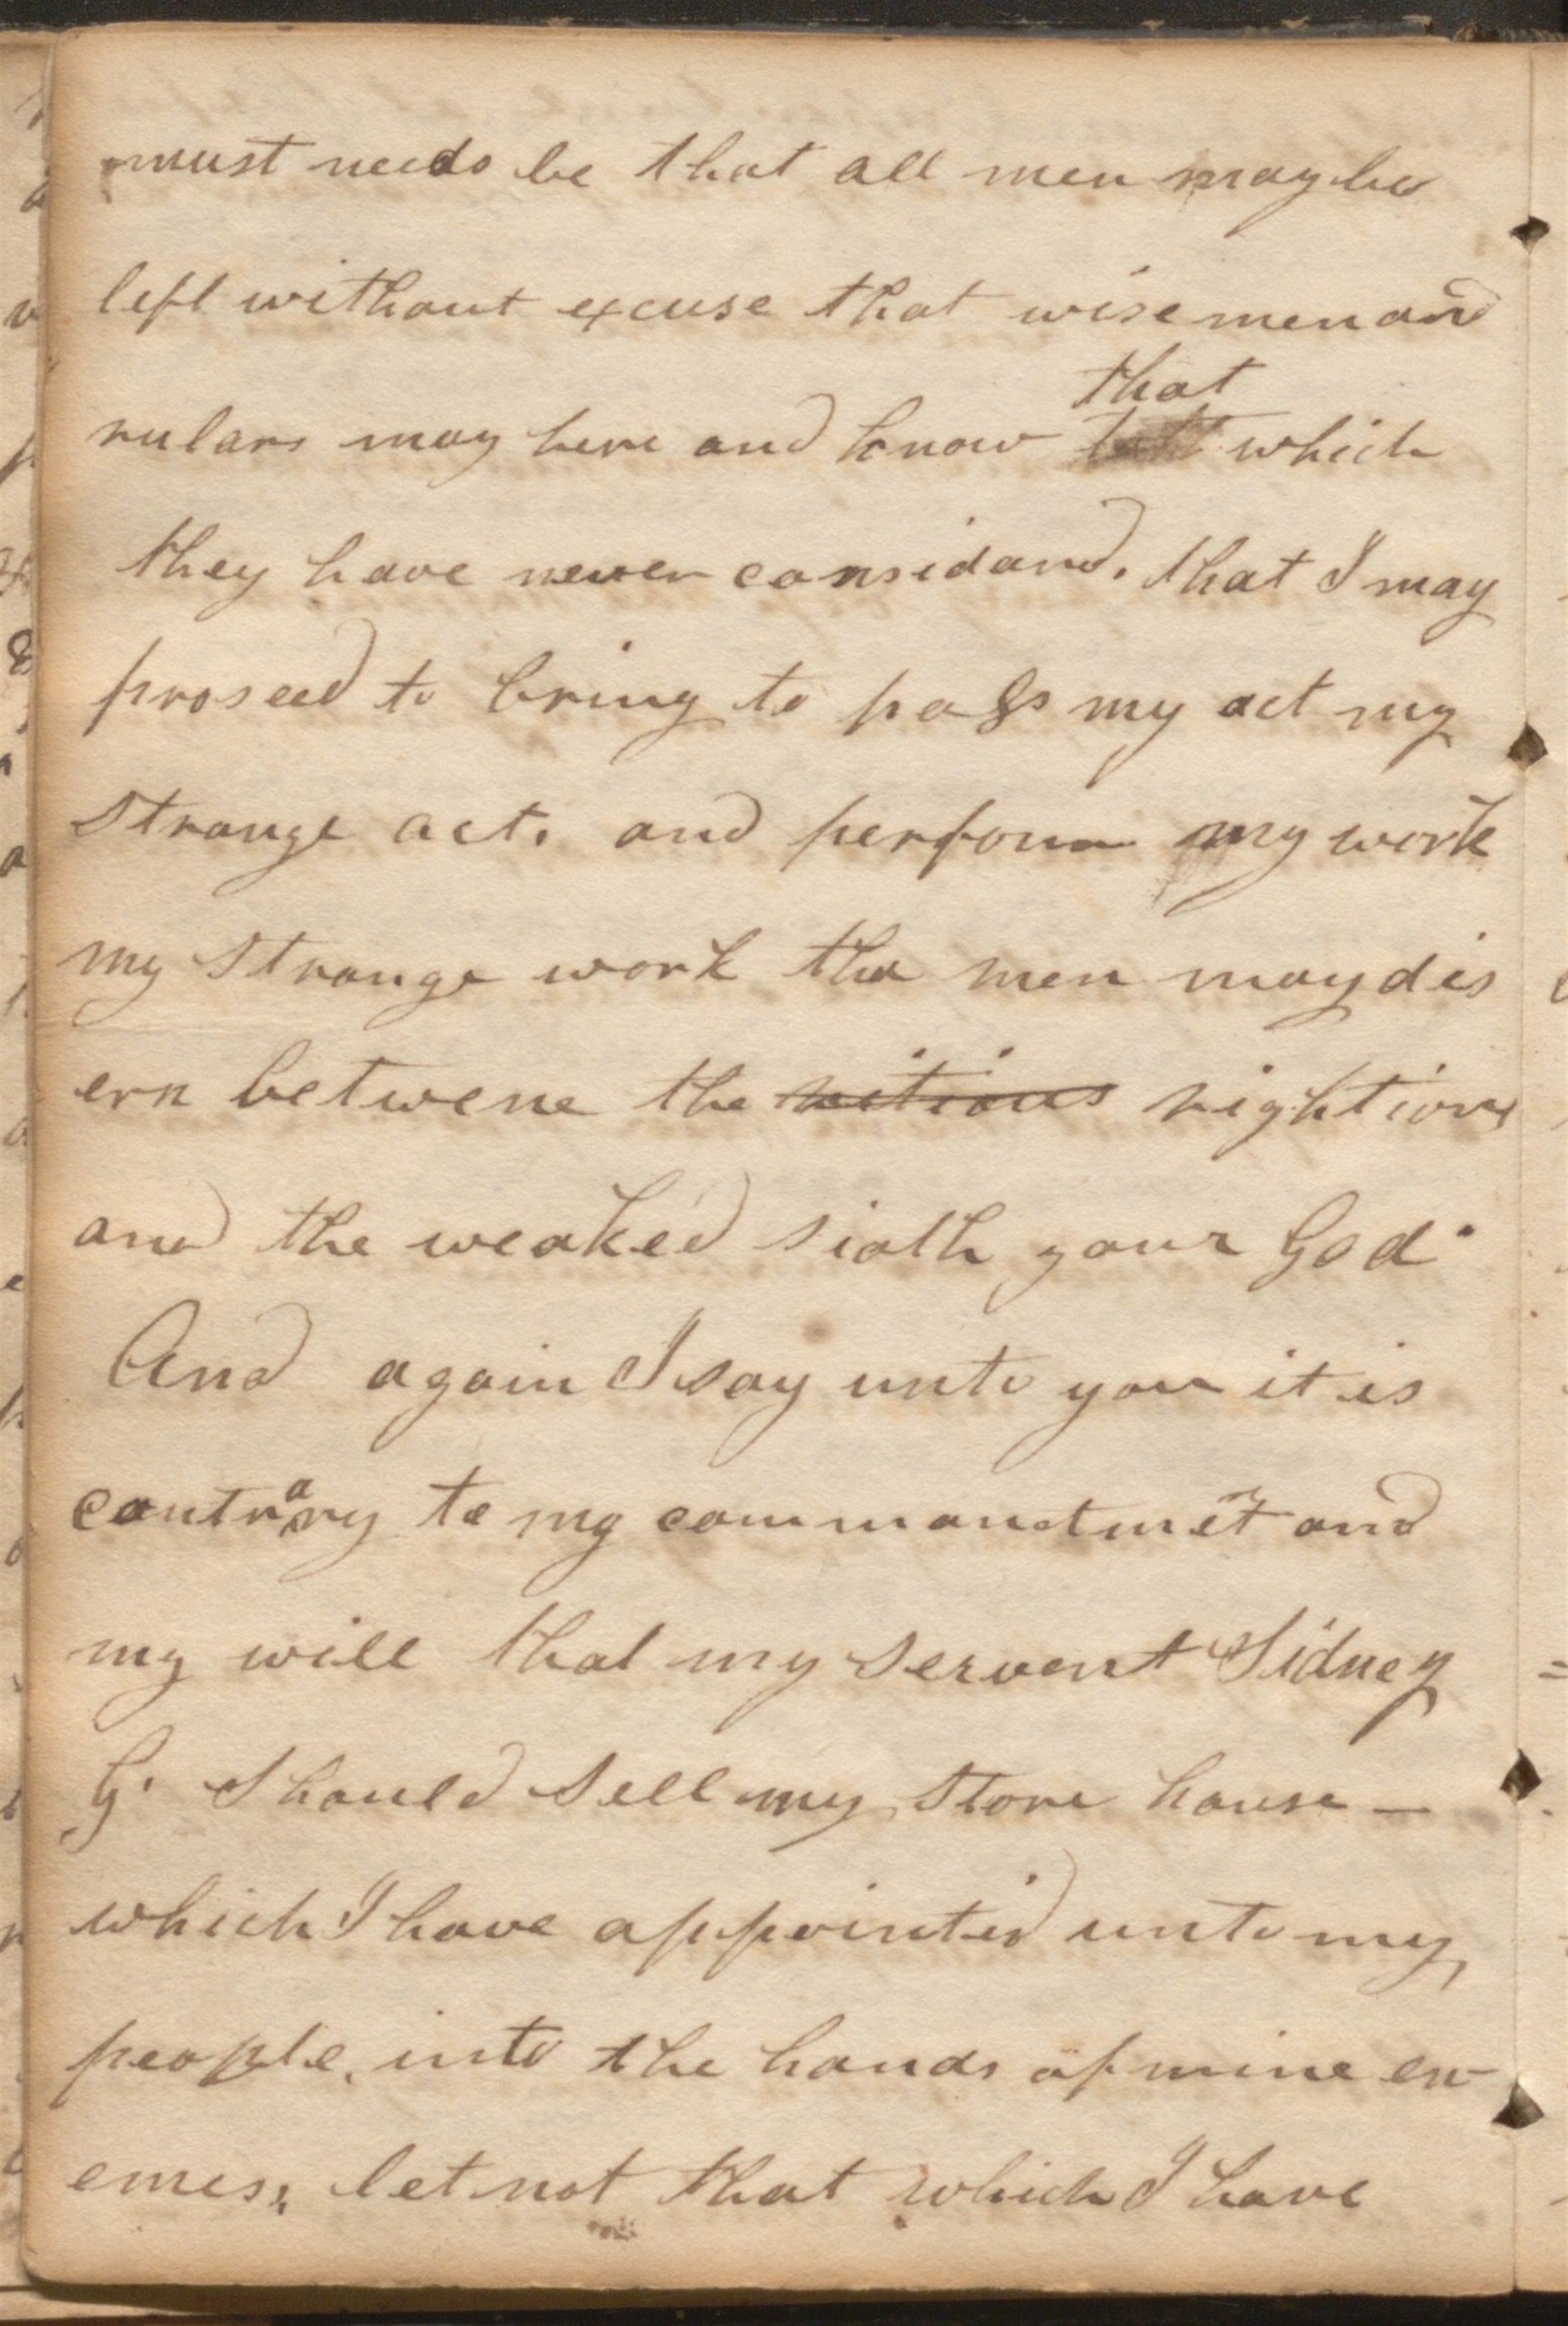 must needs be that all men may be
left without excuse that wise men and
rulars may here and know that which
they have never considard. that I may
proseed to bring to pass my act my
strange act. and perform my work
my strange work tha men may dis
ern betwene the ritious rightious
and the weaked siath your God.
And again I say unto you it is
contrary to my commandmet and
my will that my servent Sidney
G. should sell my store house —
which I have appointed unto my
people, into the hands of mine en-
emes, let not that which I have